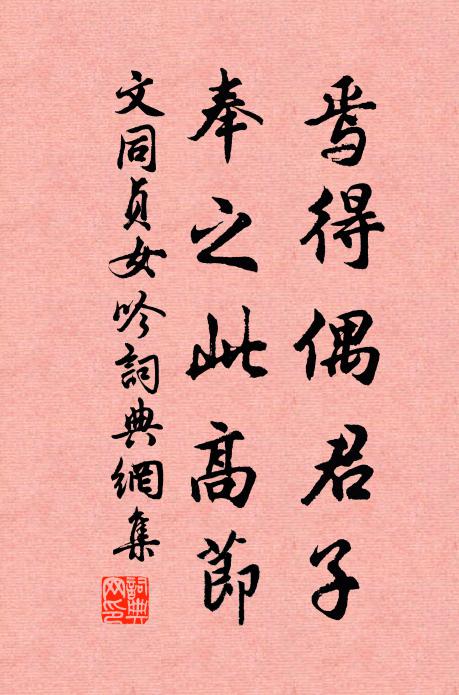 焉得偶君子
奉之此高節
文同貞女吟詞典網集
詞典
網印